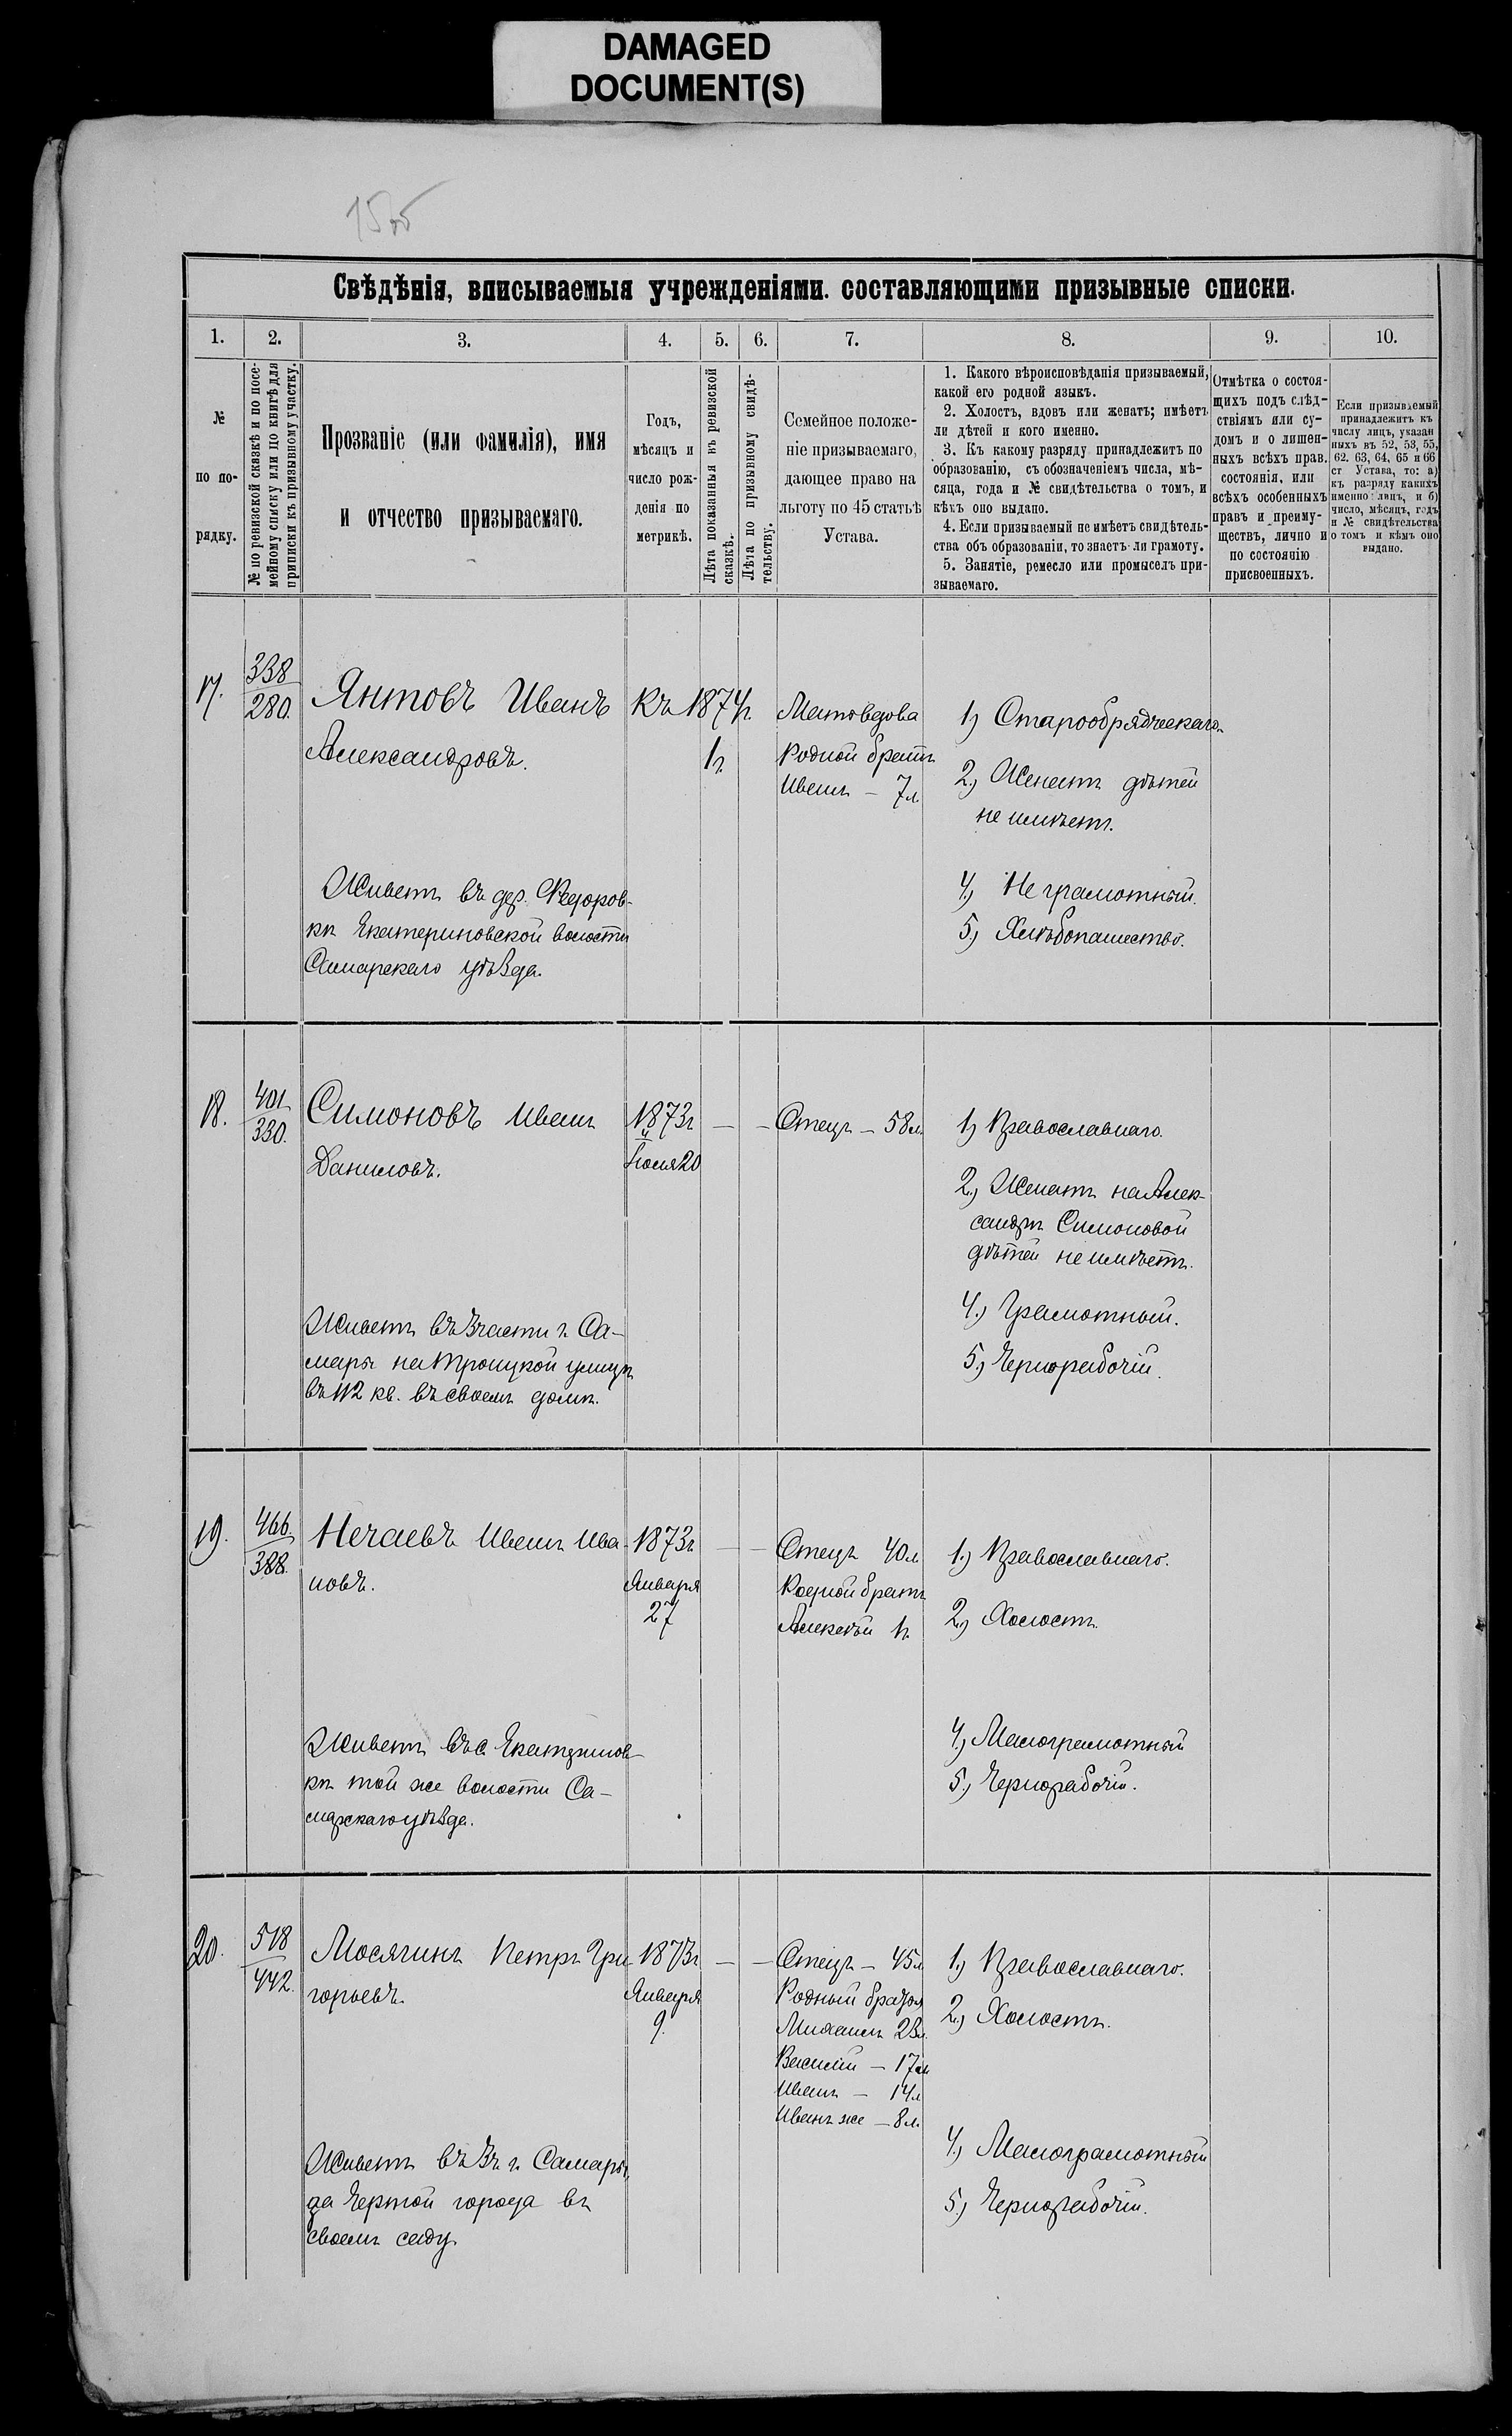 DAMAGED
DOCUMENT(S)
15об
Свѣдѣнія, вписываемыя учрежденіями. составляющими призывные списки.
1.
2.
3.
4.
5.
6.
7.
8.
9.
10.
№
по по-
рядку.
№ по ревизской сказкѣ и по посе-
мейному списку или по книгѣ для
приписки къ призывному участку.
Прозваніе (или фамилія), имя
и отчество призываемаго.
Годъ,
мѣсяцъ и
число рож-
денія по
метрикѣ.
Лѣта показанныя въ ревизской
сказкѣ.
Лѣта по призывному свидѣ-
тельству.
Семейное положе-
ніе призываемаго,
дающее право на
льготу по 45 статьѣ
Устава.
1. Какого вѣроисповѣданія призываемый,
какой его родной языкъ.
2. Холостъ, вдовъ или женатъ; имѣетъ
ли дѣтей и кого именно.
3. Къ какому разряду принадлежитъ по
образованію, съ обозначеніемъ числа, мѣ-
сяца, года и № свидѣтельства о томъ, и
кѣмъ оно выдано.
4. Если призываемый не имѣетъ свидѣтель-
ства объ образованіи, то знаетъ-ли грамоту.
5. Занятіе, ремесло или промыселъ при-
зываемаго.
Отмѣтка о состоя-
щихъ подъ слѣд-
ствіямъ или су-
домъ и о лишен-
ныхъ всѣхъ прав.
состоянія, или
всѣхъ особенныхъ
правъ и преиму-
ществъ, лично и
по состоянію
присвоенныхъ.
Если призываемый
принадлежитъ къ
числу лицъ, указан
ныхъ въ 52, 53, 55,
62. 63, 64, 65 и 66
ст Устава, то: а)
къ разряду какихъ
именно лицъ, и б)
число, мѣсяцъ, годъ
и № свидѣтельства
о томъ и кѣмъ оно
выдано.
17.
338
280.
Янтовъ Иванъ
Александровъ.
Живетъ въ дер. Федоров-
кѣ Екатериновской волости
Самарскаго уѣзда.
Къ 1874г.
1г.
Родной братъ
Иванъ – 7л.
1) Старообрядческаго.
2) Женатъ дѣтей
не имѣетъ.
4) Не грамотный.
5) Хлѣбопашество.
18.
401
330.
Симоновъ Иванъ
Даниловъ.
Живетъ въ 3 части г. Са-
мары на Троицкой улицѣ
въ 112 кв. въ своемъ домѣ.
1873г
Июня 20
–
–
Отецъ – 58л.
1) Православнаго.
2.) Женатъ на Алек-
сандрѣ Симоновой
дѣтей не имѣетъ.
4.) Грамотный.
5.) Чернорабочій.
19.
466.
388.
Нечаевъ Иванъ Ива-
новъ.
Живетъ въ с. Екатеринов-
кѣ той же волости Са-
марскаго уѣзда.
1873г
Января
27
–
–
Отецъ 40л
Родной братъ
Алексѣй 1г.
1.) Православнаго.
2.) Холостъ.
4.) Малограмотный
5.) Чернорабочій.
20.
518
442.
Мосягинъ Петръ Гри-
горьевъ.
Живетъ въ 3 ч. г. Самары,
за чертой города въ
своемъ саду.
1873г
Января
9.
–
–
Отецъ – 45л
Родный братья
Михаилъ 23л.
Василій – 17л
Иванъ – 14л
Иванъ же – 8л.
1.) Православнаго.
2.) Холостъ.
4.) Малограмотный
5.) Чернорабочій.